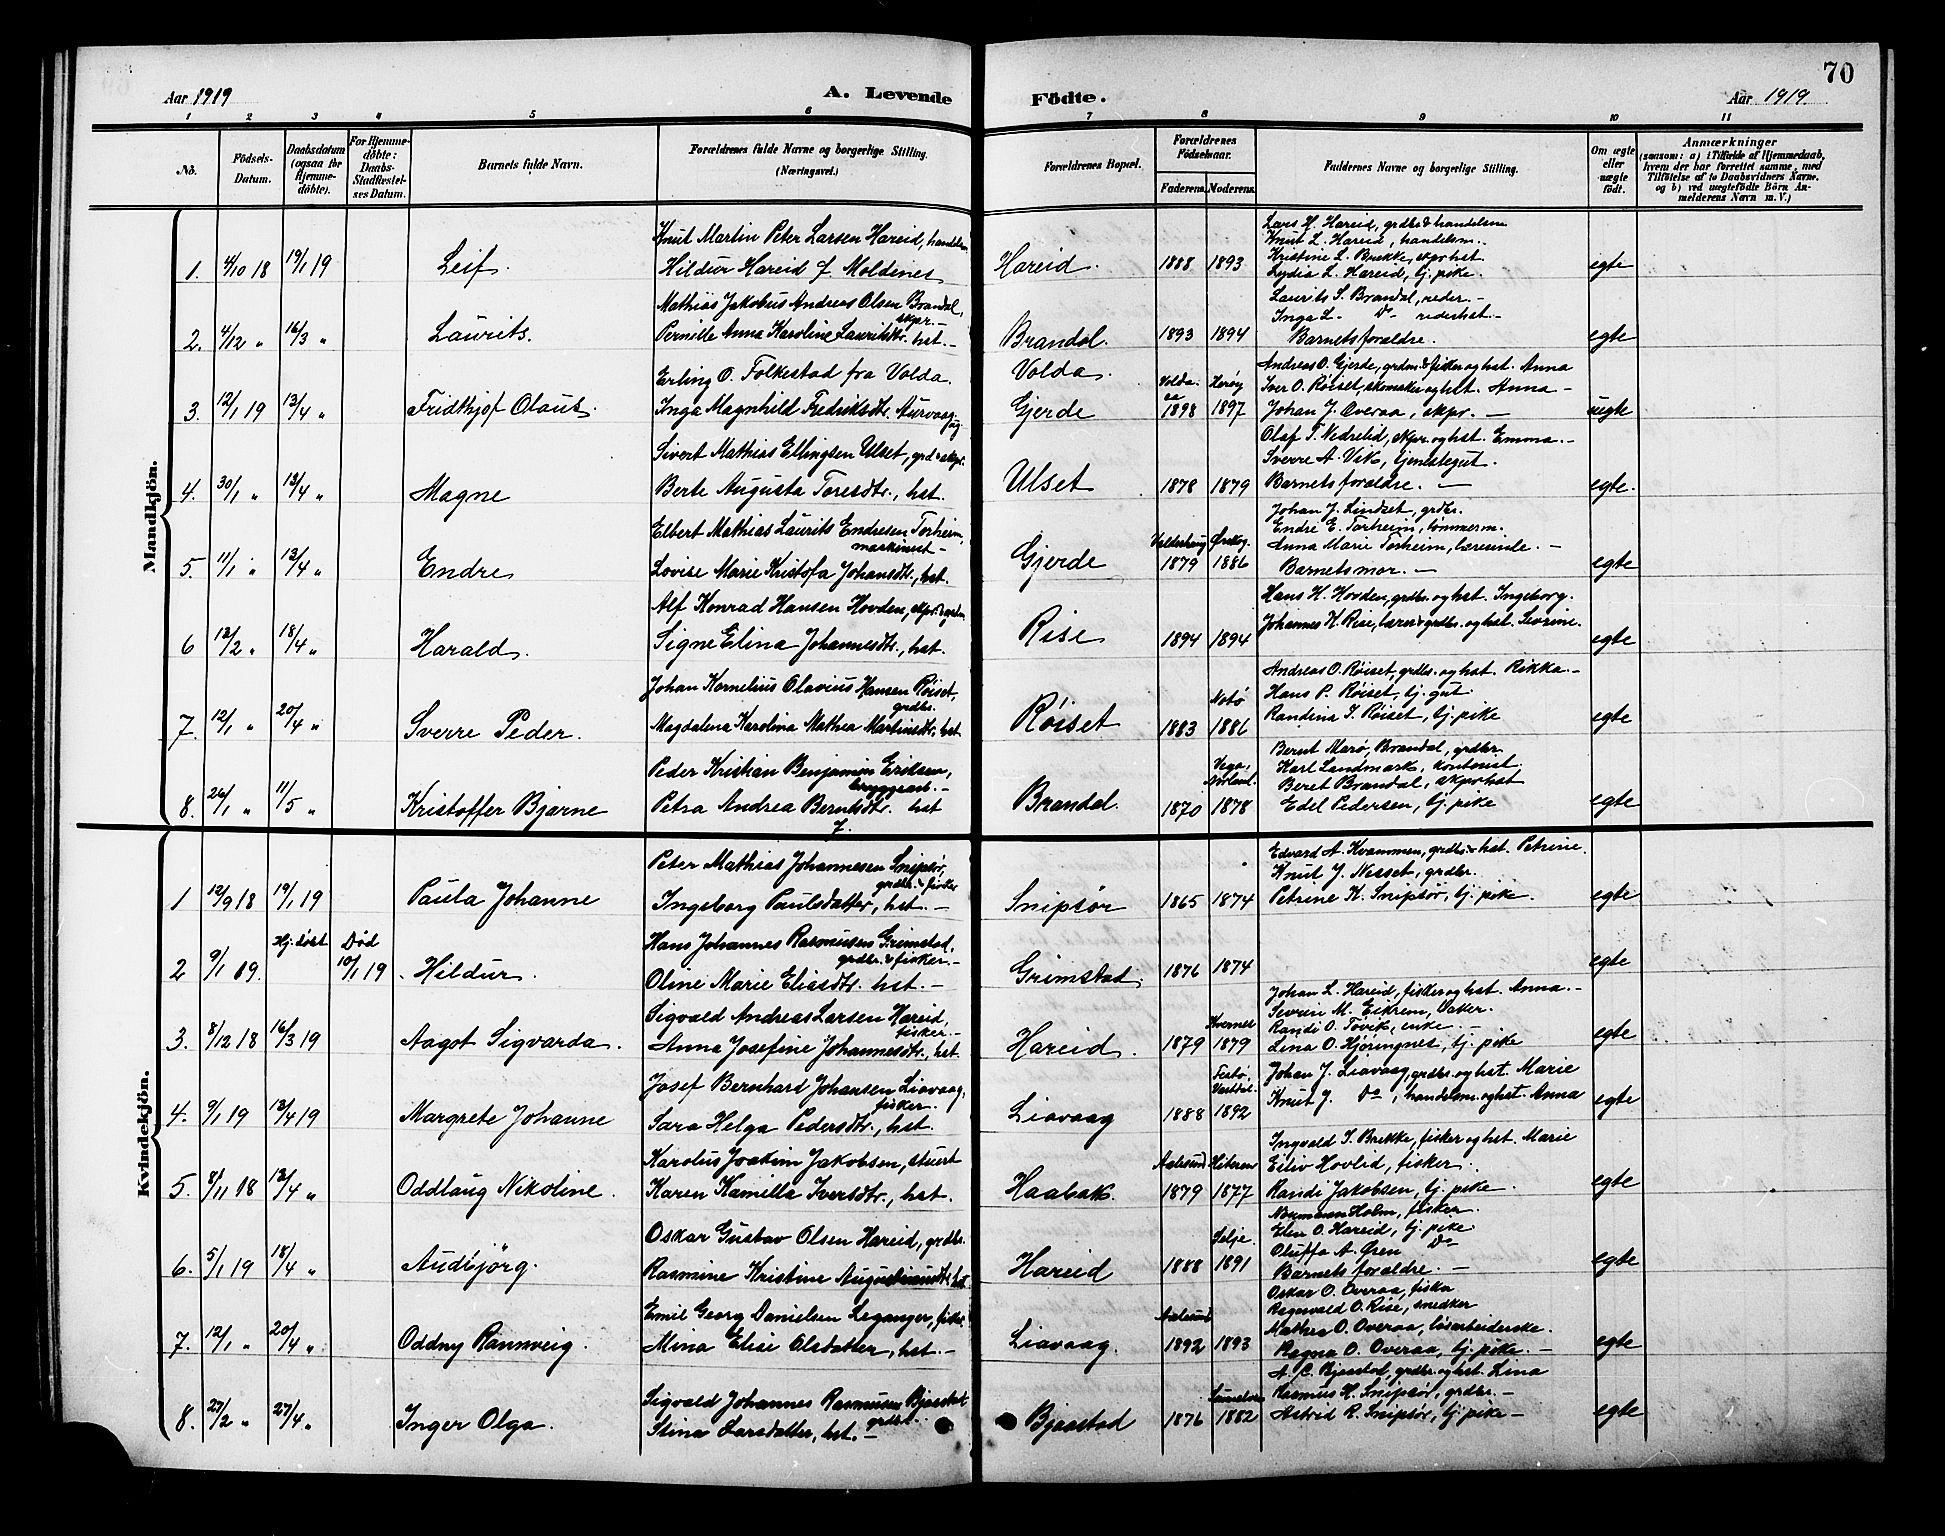 70
Aar 1919
A. Levende
Födte.
Aar 1919
1 2 3 4 5 6 7 8 9 10 11
No.
Födsels-Datum.
Daabsdatum (ogsaa för Hjemmedöbte).
For Hjemmedöbte: Daabs-Stadfæstelses Datum.
Barnets fulde Navn.
Forældrenes fulde Navne og borgerlige Stilling. (Næringsvei.)
Forældrenes Bopæl.
Forældrenes Födselsaar.
Faderens. Moderens.
Faddernes Navne og borgerlige Stilling.
Om ægte eller uægte födt.
Anmærkninger
(saasom: a) i Tilfælde af Hjemmedaab, hvem der har forrettet samme, med Tilföielse af to Daabsvidners Navne, og b) ved uægtefödte Börn Anmelderens Navn m. V.)
Mandkjön.
Knut Martin Peter Larsen Hareid, handelsm.
Lars H. Hareid, grdbr & handelsm
Knut L. Hareid, handelsm.
1. 4/10 18 19/1 19 Leif. Hildur Hareid f Moldines Hareid. 1888 1893 Kristine L. Brekke, skprhst egte
Lydia L. Hareid, tj. pike.
Mathias Jakobus Andreas Olsen Brandal, skpr. —
Laurits S. Brandal, reder. —
Inga L— Do rederhst. —
2. 4/12 " 16/3 " Laurits. Pernille Anna Karoline Lauritsdtr. hst. — Brandal. 1893 1894 Barnets forældre. egte
Erling O. Folkestad fra Volda. Volda. Volda Herøy
Andreas O. Gjerde, grdm. & fisker og hst. Anna
Iver O. Røiset, skomaker og hst. Anna —
3. 12/1 19 13/4 " Fridthjof Olaus. Inga Magnhild Fredriksdtr. Aurvaag Gjerde 1898 1897 Johan J. Overaa, skpr. — uegte
Olaf T. Nedrelid, skpr. og hst. Emma. —
Sivert Mathias Ellingsen Ulset, grd & skpr.
Sverre A. Vik, tjenestegut.
4. 30/1 " 13/4 " Magne Berte Augusta Toresdtr., hst. Ulset 1878 1879 Barnets forældre. — egte.
Elbert Mathias Laurits Endresen Torheim, maskinist —
Johan J. Lindset, grdbr.
Endre E. Torheim, tømmerm.
Anna Marie Torheim, lærerinde. —
5. 11/1 " 13/4 " Endre Lovise Marie Kristofa Johansdtr., hst. Gjerde 1879 1886 Barnets mor. — egte
Alf Konrad Hansen Hovden, skpr. & grdm
Hans H. Hovden, grdbr. og hst. Ingeborg.
Johannes K. Rise, lærer & grdbr. og hst. Severine.
6 13/2 " 18/4 " Harald. Signe Elina Johannesdtr., hst. Rise 1894 1894 egte
Johan Kornelius Olavius Hansen Røiset, grdbr.
Andreas O. Røiset, grdbr. og hst. Rikka. —
Hans P. Røiset, tj. gut.
7. 12/1 " 20/4 " Sverre Peder. Magdalena Karolina Mathea Martinsdtr. hst Røiset 1883 1886 Randina I. Røiset, tj. pike egte
Peder Kristian Benjamin Eriksen, bryggearb. —
Bernt Marø, Brandal, grdbr.
Karl Landmark, kontorist.
Beret Brandal, skprhst
8. 26/1 " 11/5 " Kristoffer Bjarne Petra Andrea Berntsdtr. hst Brandal. 1870 1878 Edel Pedersen, tj. pike egte
Kvindekjön.
Peter Mathias Johannesen Snipsør, grdbr. & fisker
Edvard A. Kvammen, grdbr. & hst. Petrine.
Knut J. Nesset, grdbr.
1 12/9 18 19/1 19 Paula Johanne Ingeborg Paulsdatter, hst. — Snipsør 1865 1874 Petrine K. Snipsør, tj. pike. egte
Hans Johannes Rasmusen Grimstad, grdbr. & fisker. —
2 9/1 19. Hj. døbt Død 10/1 19 Hildur. Oline Marie Eliasdtr. hst. — Grimstad 1876 1874 egte
Sigvald Andreas Larsen Hareid, fisker. —
Johan L. Hareid, fisker og hst. Anna. —
Severin M. Eikrem, Vatter.
Randi O. Tøvik, enke. —
3. 8/12 18 16/3 19 Aagot Sigvarda. Anna Josefine Johannesdtr., hst Hareid. 1879 1879 Lina O. Hjøringnes, tj. pike egte
Josef Bernhard Johansen Liavaag, fisker.
Johan J. Liavaag, grdbr. og hst. Marie
Knut J. Do, handelsm. og hst. Anna
4. 9/1 19 13/4 19 Margrete Johanne Sara Helga Pedersdtr., hst. Liavaag 1888 1892 egte
Karolus Joakim Jakobsen, stuert Aalesund Hiteren
Ingvald I. Brekke, fisker og hst. Marie
Eiliv Hovlid, fisker.
5. 8/11 18 13/4 " Oddlaug Nikoline. Karen Kamilla Iversdtr., hst. Haabak. 1879 1877 Randi Jakobsen, tj. pike. egte
Normann Holm, fisker.
Oskar Gustav Olsen Hareid, grdbr. Selje.
Elen O. Hareid, tj. pike
Oluffa A. Øren Do
6. 5/1 19 18/4 " Audbjörg. Rasmine Kristine hst Hareid 1888 1891 Barnets forældre. — egte
Emil Georg Danielsen Leganger, fisker Aalesund
Oskar O. Overaa, fisker
Ragnvald O. Rise, smedker
Mathea O. Overaa, løsarbeiderske.
7. 12/1 " 20/4 " Oddny Rannveig. Mina Elise Olsdatter, hst. — Liavaag. 1892 1893 Ragna O. Overaa, tj. pike. — egte
Sigvald Johannes Rasmusen Bjaastad grdbr.
A. C. Bjaastad, grdbr. og hst. Lina
Rasmus K. Snipsør, grdbr. —
8. 27/2 " 27/4 " Inger Olga. Stina Larsdatter, hst. — Bjaastad 1876 1882 Astrid R. Snipsør, tj. pike — egte